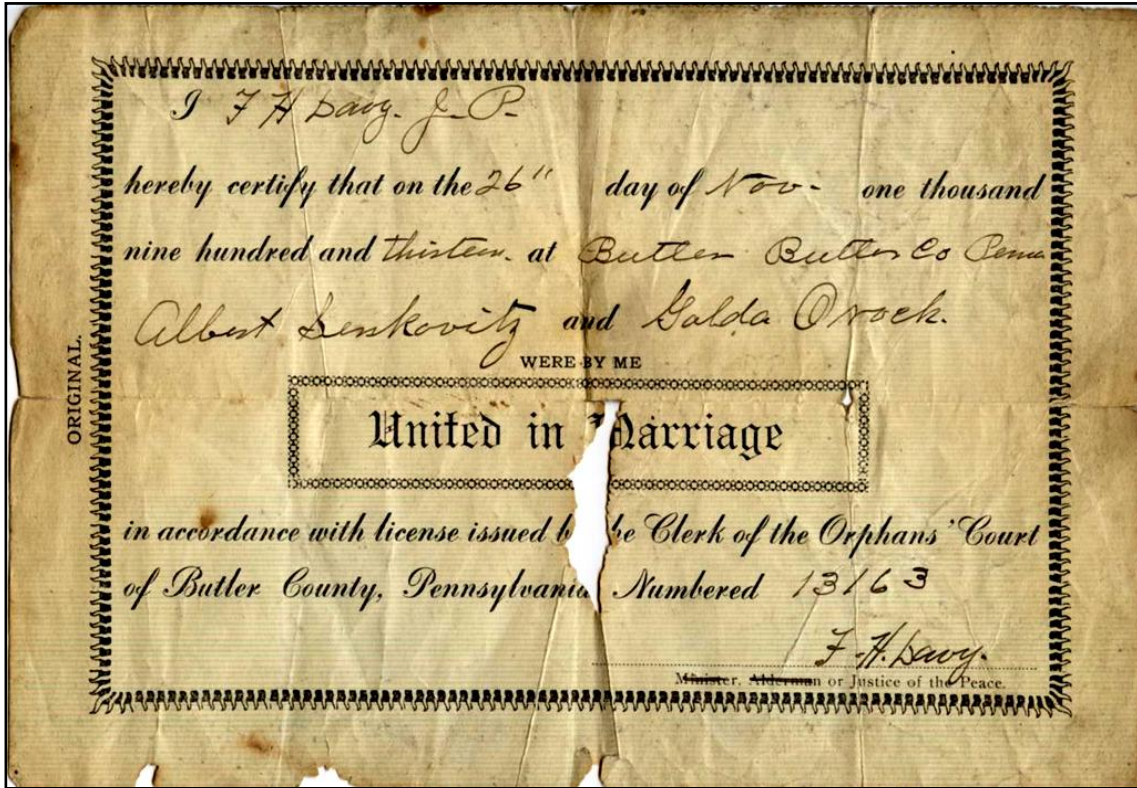 I F H Davy. J. P.
hereby certify that on the 26" day of Nov- one thousand
nine hundred and thirteen. at Butler Butler Co Penna
Albert and Golda
WERE BY ME
United in Marriage
in accordance with license issued by the Clerk of the Orphans' Court
of Butler County, Pennsylvania Numbered 13163
F. H. Davy.
Minister. Alderman or Justice of the Peace.
ORIGINAL.